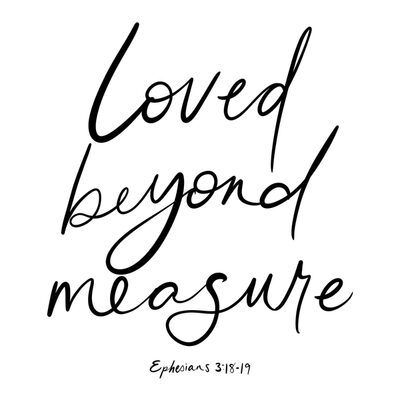 Loved
beyond
measure
Ephesians 3:18-19